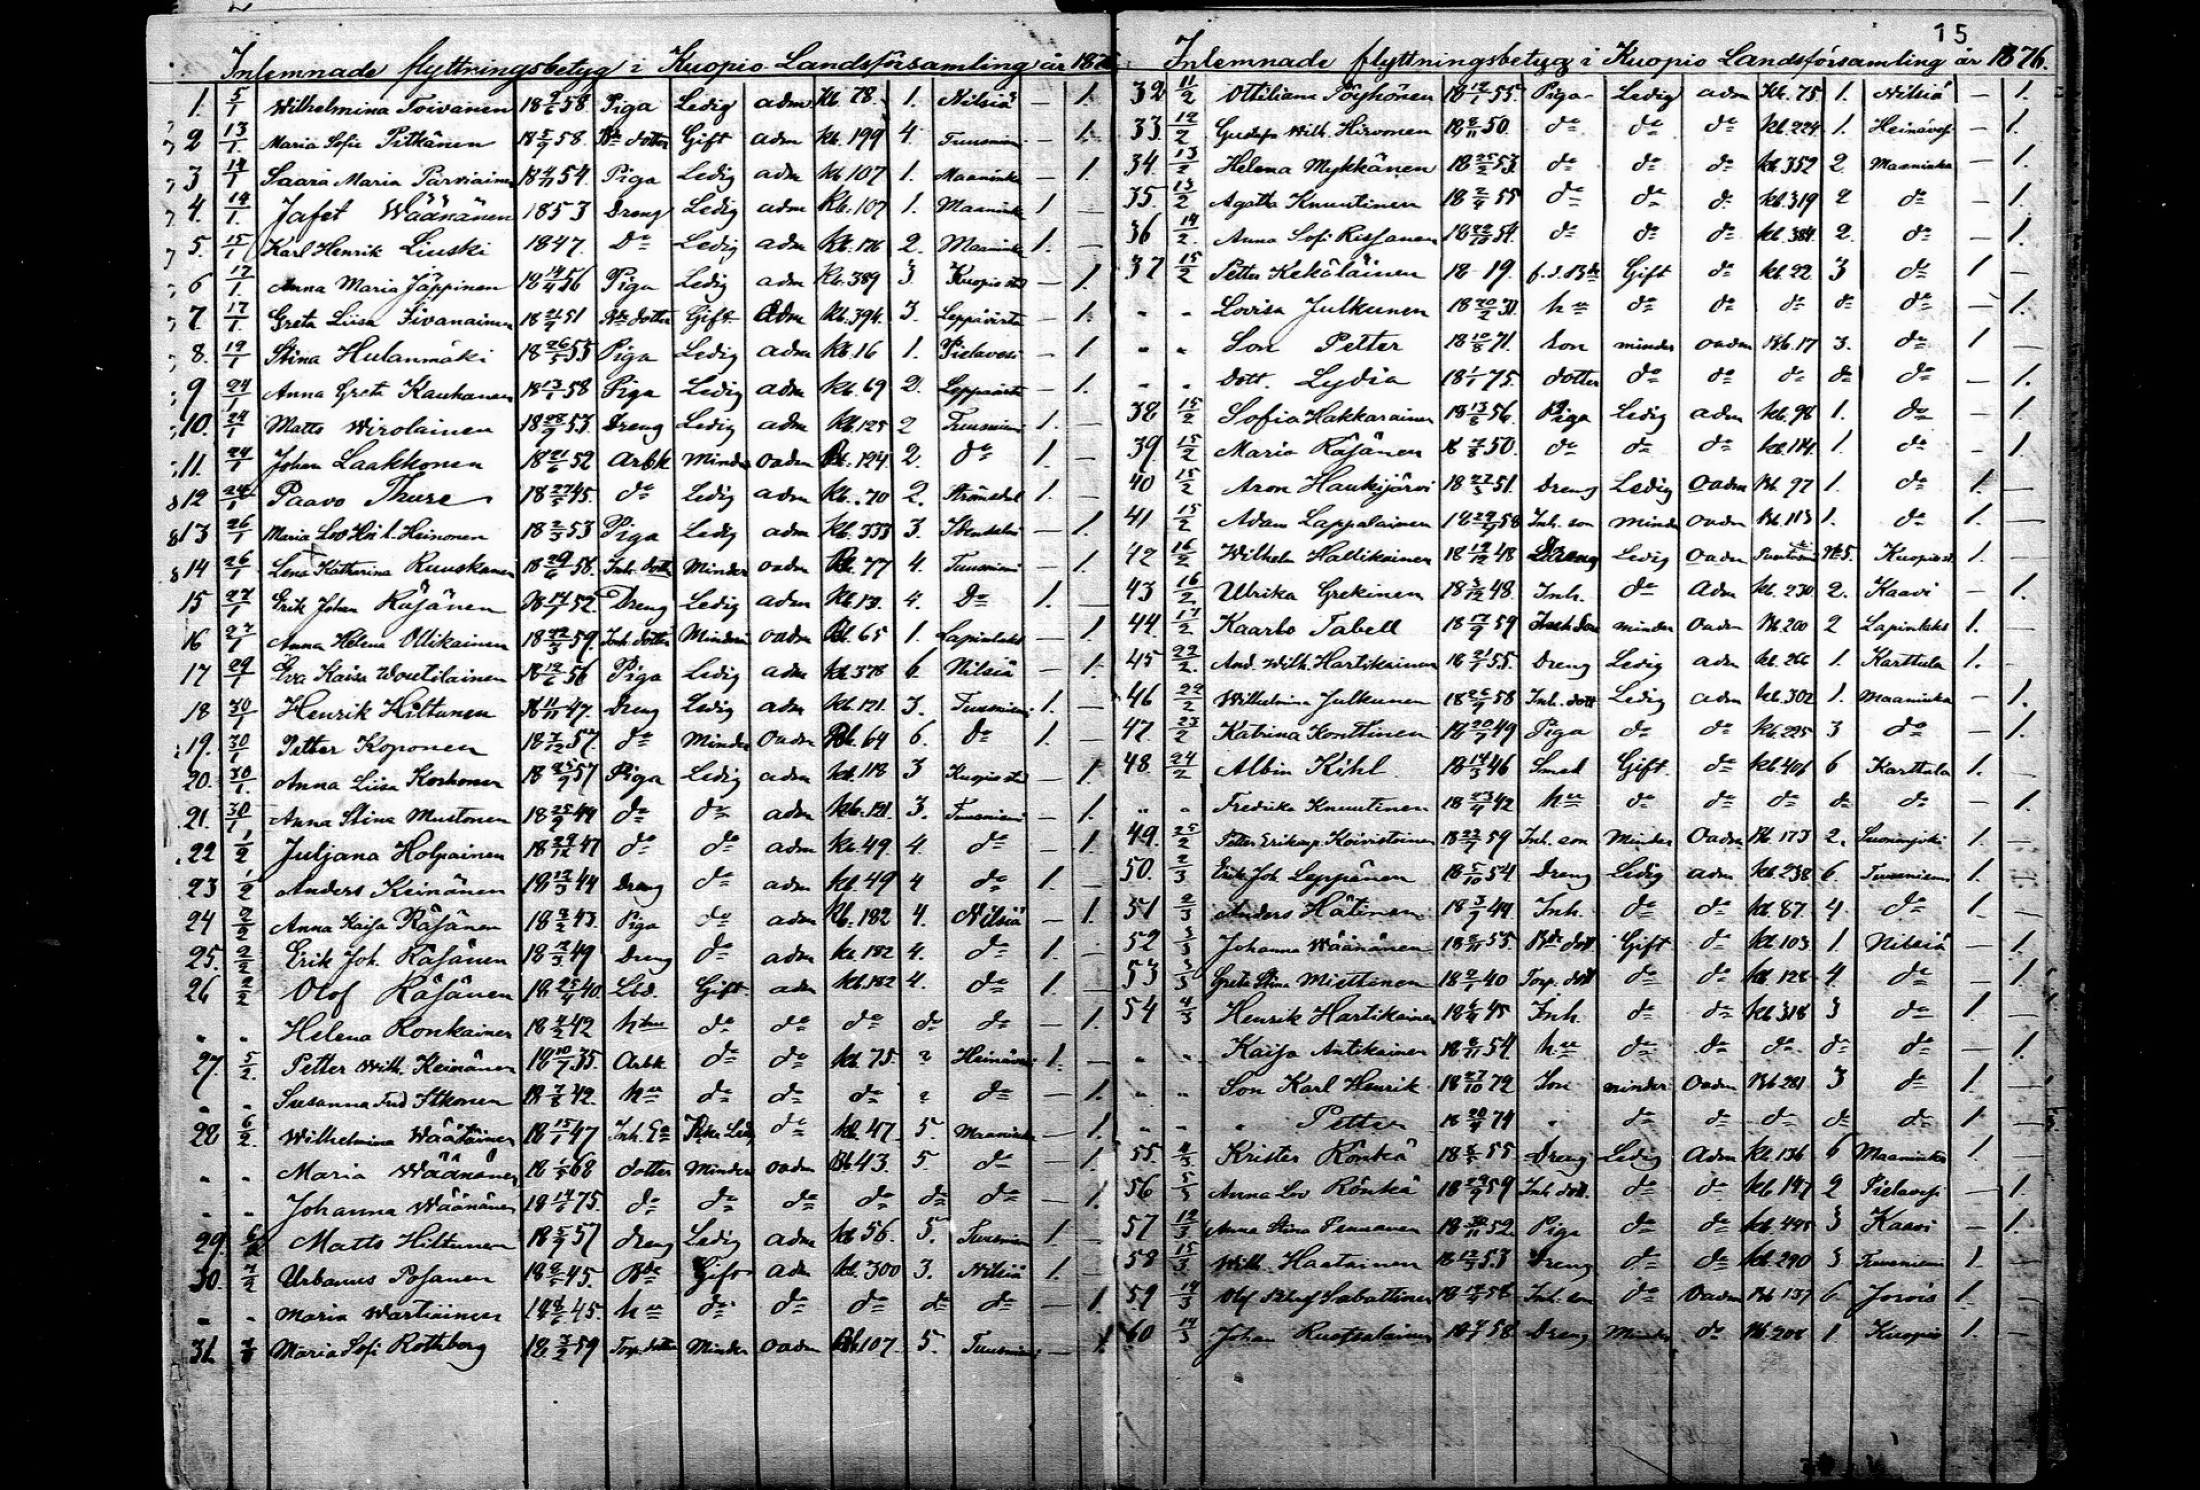 15
Inlemnade flyttningsbetyg i Kuopio Landsförsamling år 187
1. 5/1 Wilhelmina Toivanen 18 58 Piga Ledig adm kb. 78. 1. Nilsiä — 1.
2 13/1 Maria Sofie Pitkänen 18 58 dotter Gift adm kb. 199 4. Tuusniemi — 1.
3 14/1 Saara Maria Parviainen 18 54 Piga Ledig adm kb 107 1. Maaninka — 1.
4. 14/1. Jafet Wäänänen 1853 Dreng Ledig adm kb. 107 1. Maaninka 1 —
5. 15/1 Karl Henrik Liuski 1847. do Ledig adm kb. 176 2. Maaninka 1. —
6 17/1. Anna Maria Jäppinen 18 14/4 56 Piga Ledig adm kb. 389 3. Kuopio stad — 1.
7. 17/1. Greta Liisa 18 51 dotter Gift adm kb. 394. 3. Leppävirta — 1.
8. 19/1 Stina Hulanmäki 18 26/5 55 Piga Ledig adm kb. 16 1. Pielavesi — 1
9 24/1 Anna Greta Kauhanen 18 13/1 58 Piga Ledig adm kb. 69 2. Leppävirta — 1.
10. 24/1 Matts Wirolainen 18 28/9 53. Dreng Ledig adm kb. 125 2 Tuusniemi 1. —
11. 24/1 Johan Laakkonen 18 21/6 52 Arbk Minder oadm Bb. 124. 2. do 1. —
12 24/1 Paavo Thure 18 27/5 45. do Ledig adm kb. 70 2. 1. —
13 26/1 Maria Lov Heinonen 18 2/5 53 Piga Ledig adm kb. 333 3. Idensalmi — 1.
14 26/1 Lena Katharina Ruuskanen 18 29/6 58. Inh. dott Minder oadm Bb. 77 4. Tuusniemi — 1.
15 27/1 Erik Johan Räsänen 18 14/7 52. Dreng Ledig adm kb. 13. 4. do 1. —
16 27/1 Anna Helena Ollikainen 18 22/3 59. Inh. dotter Minder oadm Bb. 65 1. Lapinlaks — 1
17 29/1 Eva Kaisa Woutilainen 18 12/6 56 Piga Ledig adm kb. 378 6. Nilsiä — 1.
18 30/1 Henrik Hiltunen 18 11/11 47. Dreng Ledig adm kb. 121. 3. Tuusniemi 1. —
19. 30/1 Petter Koponen 18 7/12 57. do Minder oadm Bb. 64 6. do 1. —
20. 30/1. Anna Liisa Korhonen 18 25/9 57 Piga Ledig adm kb. 118 3 Kuopio stad — 1
21. 30/1 Anna Stina Mustonen 18 25/9 44 do do adm kb. 121. 3. Tuusniemi — 1.
22 1/2 Juljana Holpainen 18 29/12 47 do do adm kb. 49. 4. do — 1.
23 1/2 Anders Keinänen 18 12/3 44 Dreng do adm kb. 49 4 do 1. —
24 2/2 Anna Kaisa Räsänen 18 2/2 43. Piga do adm kb. 182 4. Nilsiä — 1.
25. 2/2 Erik Joh. Räsänen 18 2/3 49 Dreng do adm kb. 182 4. do 1. —
26 2/2 Olof Räsänen 18 25/4 40. Gift adm kb. 182 4. do 1. —
" " Helena Ronkainen 18 2/2 42 hustru do do do do do — 1.
27. 5/2. Petter Wilh. Keinänen 18 10/7 35. Arbk do do kb. 75. 2 Heinävesi 1. —
" " Susanna Fred Itkonen 18 7/8 42. hu do do do 2 do — 1.
28 6/2. Wilhelmina 18 15/1 47 Inh. Ea do kb. 47. 5. Maaninka — 1.
" " Maria Wäänänen 18 1/5 68 dotter Minder oadm Bb 43. 5. do — 1
" " Johanna Wäänänen 18 14/6 75. do do do do do do — 1.
29. 6/2 Matts Hiltunen 18 5/9 57 dreng Ledig adm kb 56. 5. Tuusniemi 1 —
30. 7/2 Urbanus Posanen 18 2/5 45. Bde Gift adm kb. 300 3. Nilsiä 1. —
" " Maria Wartiainen 18 45. hu do do do do do — 1.
31. Maria Sofi Rothberg 18 3/2 59 Torp. dotter Minder oadm Bb 107. 5. Tuusniemi — 1.
Inlemnade flyttningsbetyg i Kuopio Landsförsamling år 1876.
32 11/2 Ottiliana Pöyhönen 18 12/1 55. Piga Ledig adm kb. 75 1. Nilsiä — 1.
33. 12/2 Gustafva Wilh. Hirvonen 18 8/11 50. do do do kb. 224 1. Heinäves — 1.
34. 13/2 Helena Mykkänen 18 25/2 53. do do do kb. 352 2. Maaninka — 1.
35. 13/2 Agatha Knuutinen 18 2/4 55 do do do kb. 319 2 do — 1.
36 14/2. Anna Sofi Rissanen 18 22/10 54. do do do kb. 384. 2. do — 1.
37 15/2 Petter Kekäläinen 18 19. f. d. Bde Gift do kb. 22 3 do 1 —
" " Lovisa Julkunen 18 20/2 31 hu do do do do do — 1.
" " Son Petter 18 10/8 71. Son minder oadm Bb. 17 3. do 1 —
" " Dott. Lydia 18 1/1 75. dotter do do do do do — 1.
38 15/2 Sofia Hakkarainen 18 13/8 56. Piga Ledig adm kb. 98 1. do — 1.
39. 15/2 Maria Räsänen 18 7/8 50. do do do kb. 114. 1. do — 1
40 15/2 Aron Haukijärvi 18 27/3 51. Dreng Ledig oadm Bb. 97 1. do 1. —
41 15/2 Adam Lappalainen 18 58 Inh. son minder oadm Bb. 113 1. do 1. —
42 16/2 Wilhelm Hallikainen 18 12/12 48 Dreng Ledig oadm No 5. Kuopio st. 1. —
43 16/2 Ulrika Grekinen 18 3/12 48. Inh. do Adm kb. 230 2. Kaavi — 1.
44. 17/2 Kaarlo Tabell 18 17/9 59 Inh Son minder oadm Bb. 200 2 Lapinlaks 1. —
45 22/2. And. Wilh. Hartikainen 18 21/7 55. Dreng Ledig adm kb. 266 1. Karttula 1. —
46 22/2 Wilhelmina Julkunen 18 58 Inh. dott Ledig adm kb. 302 1. Maaninka — 1.
47. 23/2 Katrina Konttinen 18 20/7 49 Piga do do kb. 225 3 do — 1.
48. 24/2 Albin Kihl 18 14/3 46 Smed Gift. do kb. 406 6 Karttula 1. —
" " Fredrika Knuutinen 18 23/4 42 hu do do do do do — 1.
49. 25/2 Petter Eriksp. Koivistoinen 18 22/7 59 Inh. son Minder oadm Bb. 173 2. Suonenjoki 1. —
50. 2/3 Erik Joh. Leppänen 18 5/10 54 Dreng Ledig adm kb. 238 6. Tuusniemi 1. —
51 2/3 Anders Hätinen 18 3/7 44. Inh. do do kb. 87. 4 do 1. —
52 3/3 Johanna Wäänänen 18 8/11 55. Bde dott Gift do kb. 103. 1. Nilsiä — 1
53 3/3 Greta Stina Miettinen 18 2/1 40 Torp. dott do do kb. 128 4. do — 1.
54 4/3 Henrik Hartikainen 18 6/4 45 Inh. do do kb 318 3 do 1 —
" " Kaisa Antikainen 18 8/11 54 hu do do do do do — 1.
" " Son Karl Henrik 18 27/10 72 Son minder oadm Bb 281 3 do 1. —
" " " Petter 18 20/9 74 " do do do do do 1 —
55. 4/3 Krister Rönkä 18 55 Dreng Ledig Adm kb. 136 6 Maaninka 1 —
56 5/3 Anna Lov Rönkä 18 29/9 59 Inh. dott. do do kb 147 2 Pielavesi — 1.
57 12/3 Anna Stina Pennanen 18 52 Piga do do kb. 445 3 Kaavi — 1.
58 15/3 Wilh. Haatainen 18 12/5 53 Dreng do do kb. 290 3 Tuusniemi 1. —
59 17/3 Olof Sabattinen 18 58 Inh. son do oadm Bb 137 6. Jorois 1. —
60 17/3 Johan 18 58 Dreng Minder do Bb. 208 1 Kuopio 1. —